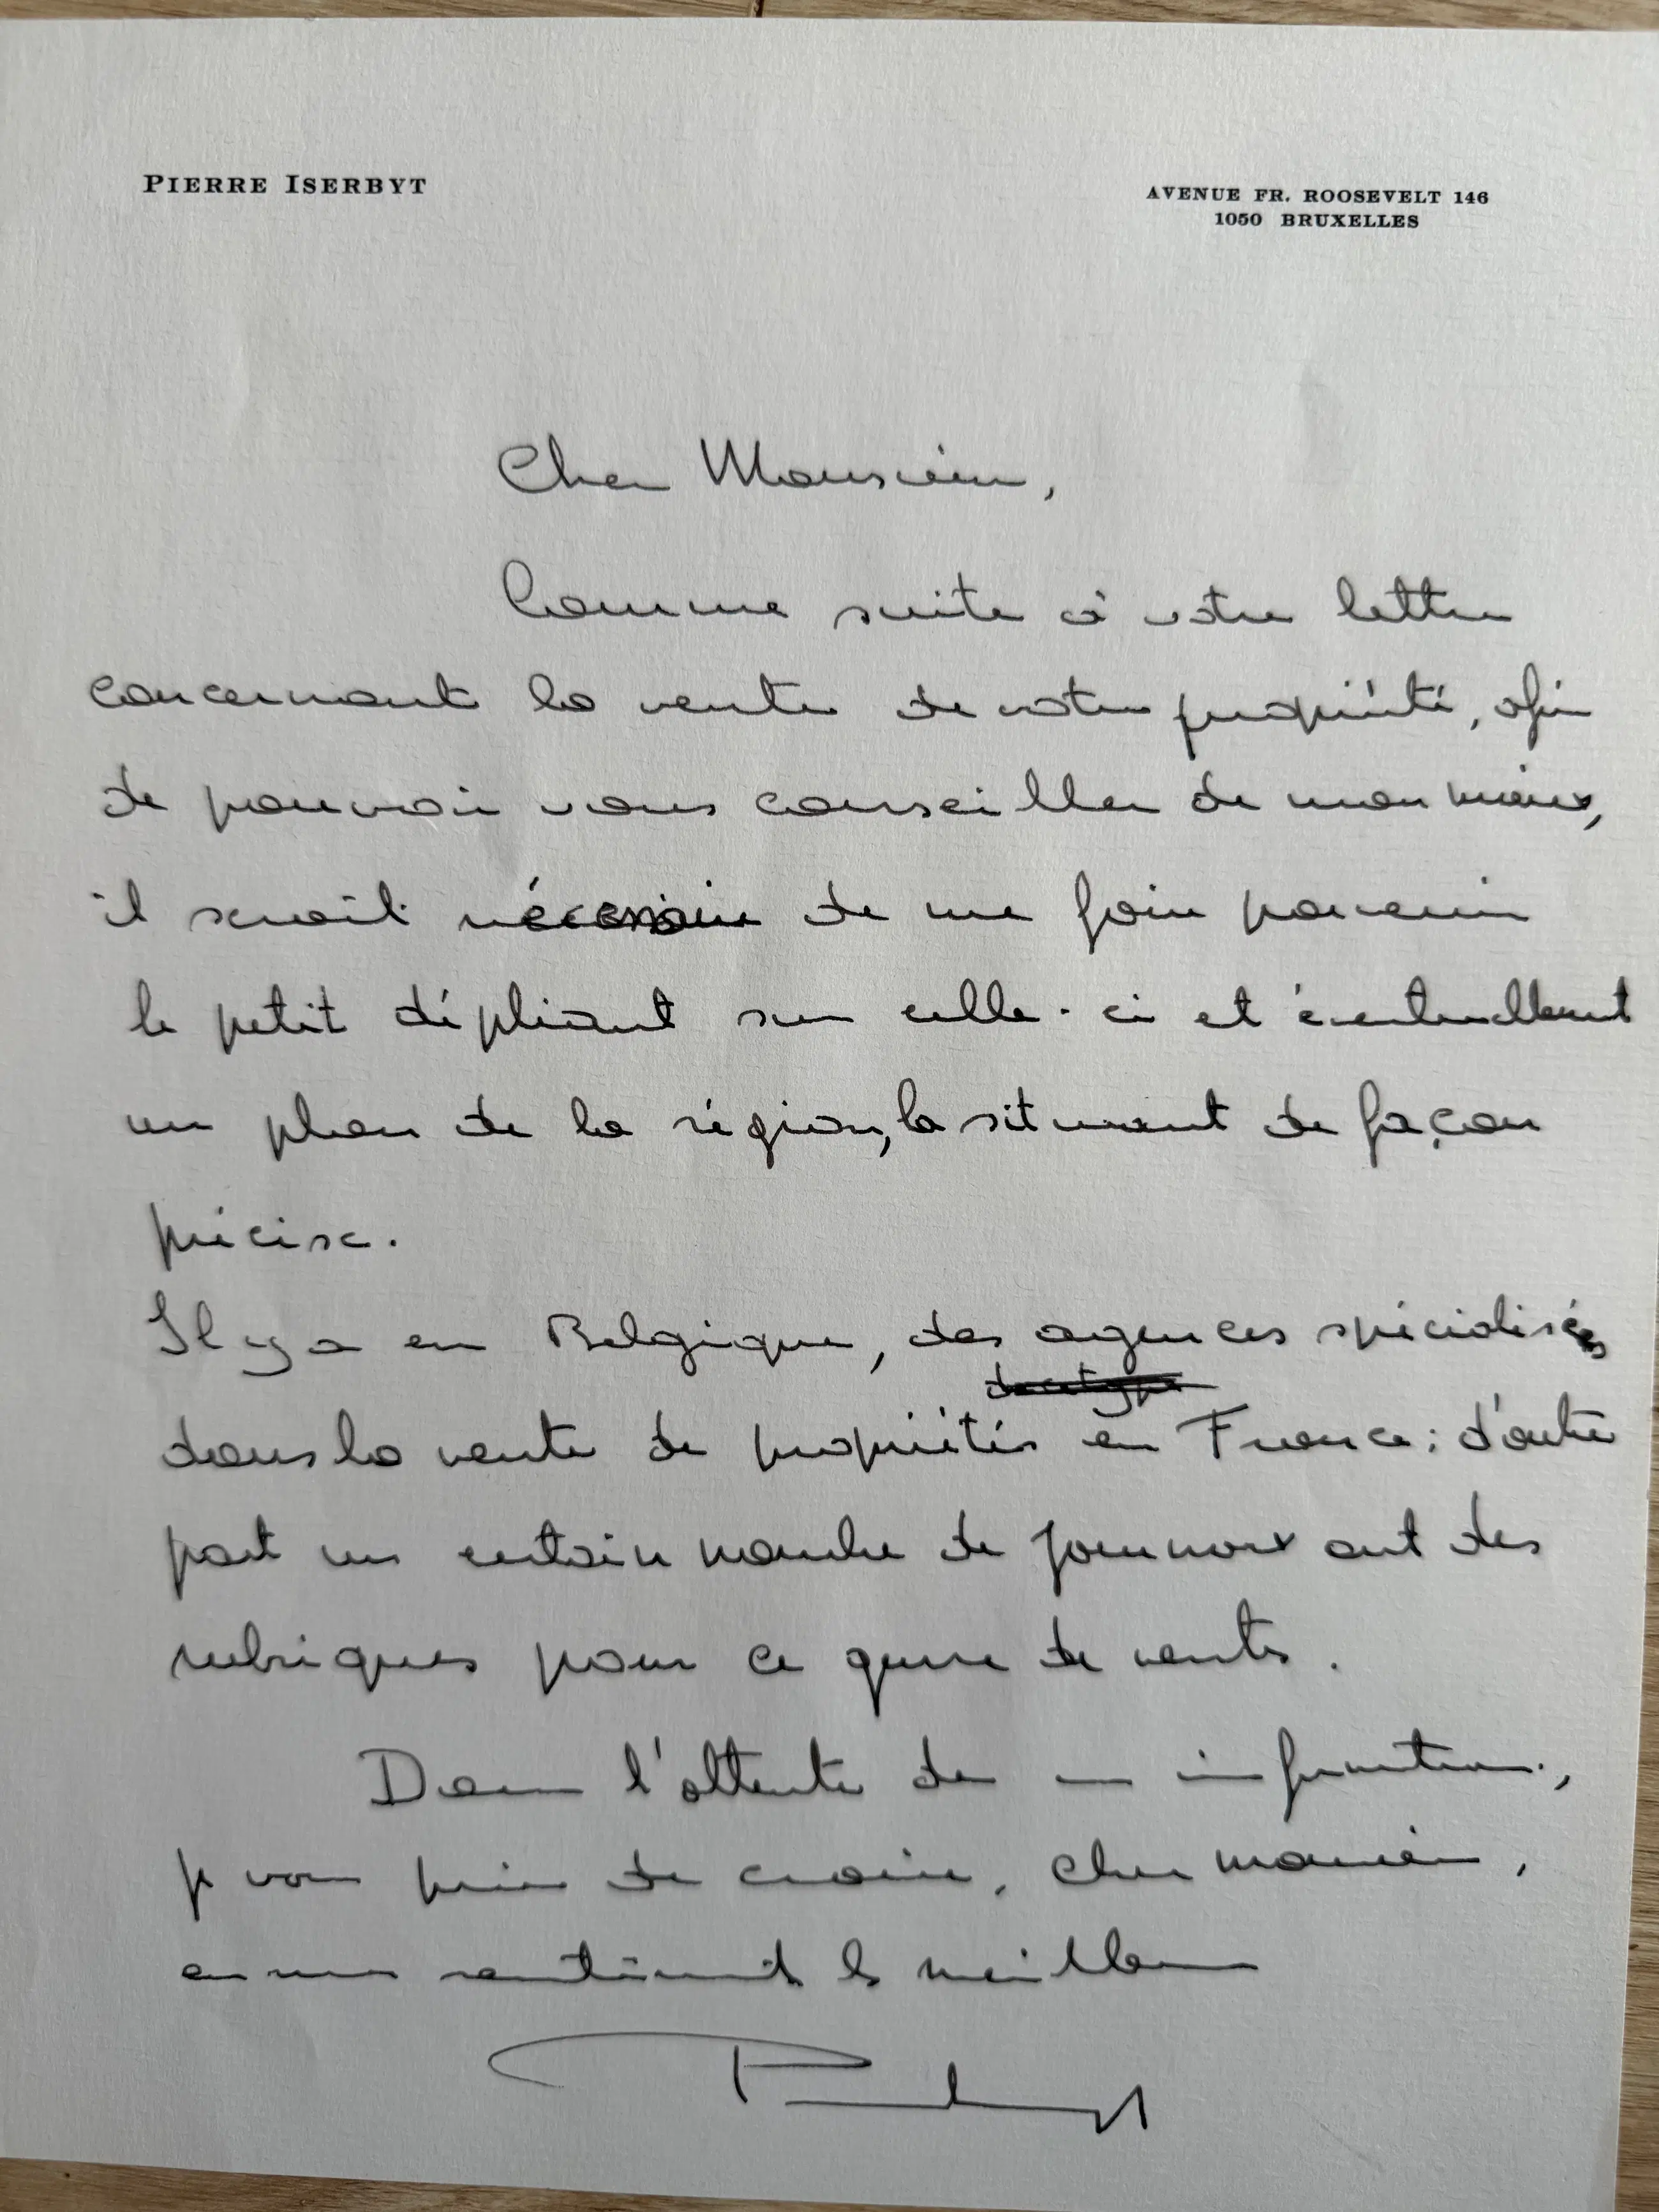 PIERRE ISERBYT
AVENUE FR. ROOSEVELT 146
1050 BRUXELLES
Cher Monsieur,
Comme suite à votre lettre
concernant la vente de votre propriété, afin
de pouvoir vous conseiller de mon mieux,
il serait nécessaire de me faire parvenir
le petit dépliant sur celle-ci et éventuellement
un plan de la région, la situant de façon
précise.
Il y a en Belgique, des agences spécialisées
dans la vente de propriétés en France ; d'autre
part un certain nombre de journaux ont des
rubriques pour ce genre de vente.
Dans l'attente de ces informations,
je vous prie de croire, cher monsieur,
en mes sentiments les meilleurs